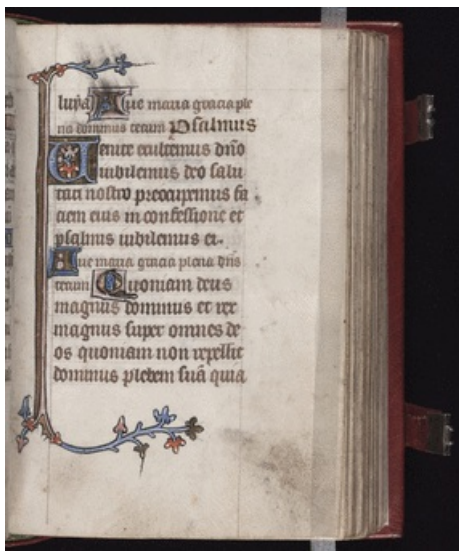 luya Aue maria gracia ple
na dominus tecum Psalmus
Uenite exultemus dño
iubilemus deo salu
tari nostro preocupemus fa
ciem eius in confessione et
psalmis iubilemus ei.
Aue maria gracia plena dñs
tecum Quoniam deus
magnus dominus et rex
magnus super omnes de
os quoniam non repellit
dominus plebem suã quia